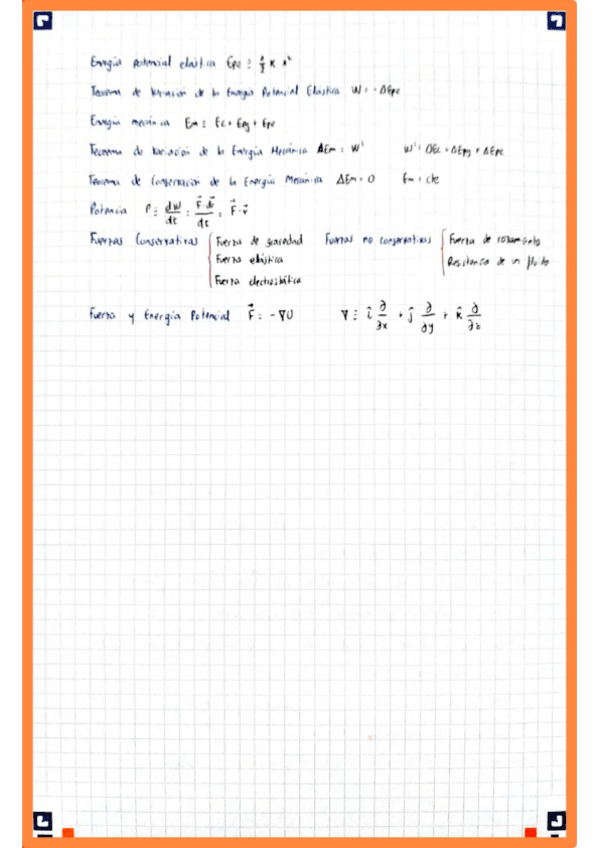 Energía potencial elástica Epe ≡ 1/2 K x²
Teorema de Variación de la Energía Potencial Elástica W = -ΔEpe
Energía mecánica Em ≡ Ec + Epg + Epe
Teorema de Variación de la Energía Mecánica ΔEm = W' W' = ΔEc + ΔEpg + ΔEpe
Teorema de Conservación de la Energía Mecánica ΔEm = 0 Em = cte
Potencia P ≡ dW/dt = F⃗·dr⃗/dt = F⃗·v⃗
Fuerzas Conservativas { Fuerza de gravedad
Fuerza elástica
Fuerza electrostática
Fuerzas no conservativas { Fuerza de rozamiento
Resistencia de un fluido
Fuerza y Energía Potencial F⃗ = -∇U ∇ ≡ î ∂/∂x + ĵ ∂/∂y + k̂ ∂/∂z